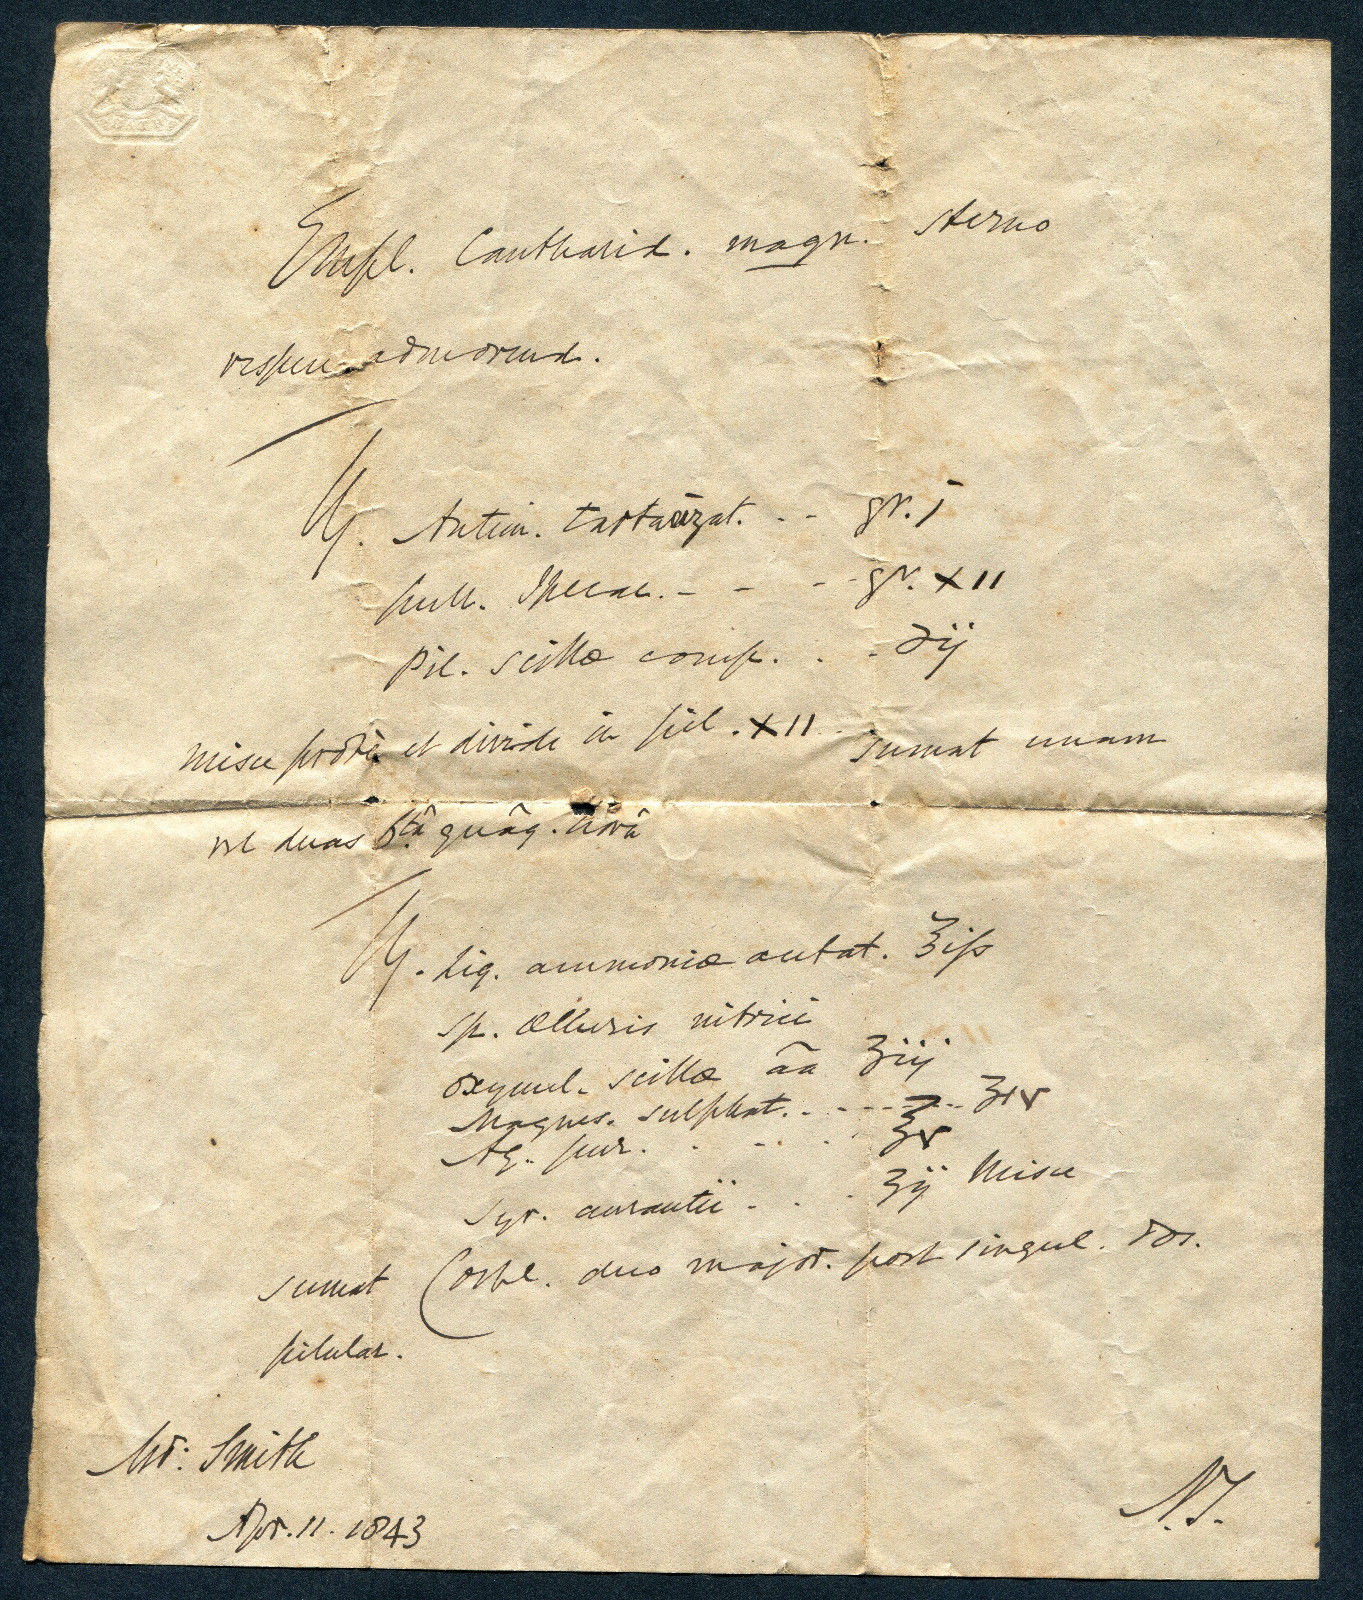 BATH
Empl. Cantharid. magn. sterno
vespere admovend.
℞. Antim. tartarizat. . - - gr. j
pulv. Ipecac. - - - - gr. XII
Pil. scillæ comp. . . - ʒij
misce probè et divide in pil. XII . . sumat unam
vel duas 6tâ quâq. horâ
℞. Liq. ammoniæ acetat. ℥iſs
sp. ætheris nitrici
oxymel. scillæ āā ʒiij
Magnes. sulphat. - - - - - - ʒiv
Aq. pur. . - - - ℥v
syr. aurantii - . . - ʒij Misce
sumat Cochl. duo major. post singul. dos.
pilular.
Mr: Smith
Apr. 11. 1843
N.T.